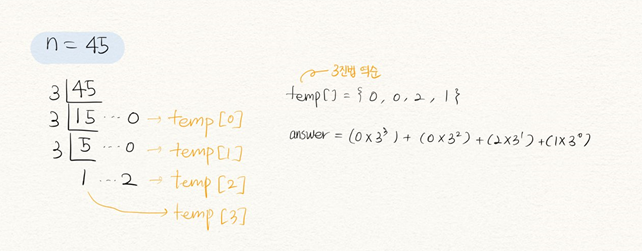 n = 45
3 45
3 15 ... 0 → temp[0]
3 5 ... 0 → temp[1]
1 ... 2 → temp[2]
→ temp[3]
3진법 역순
temp[] = { 0, 0, 2, 1 }
answer = (0 × 3³) + (0 × 3²) + (2 × 3¹) + (1 × 3⁰)